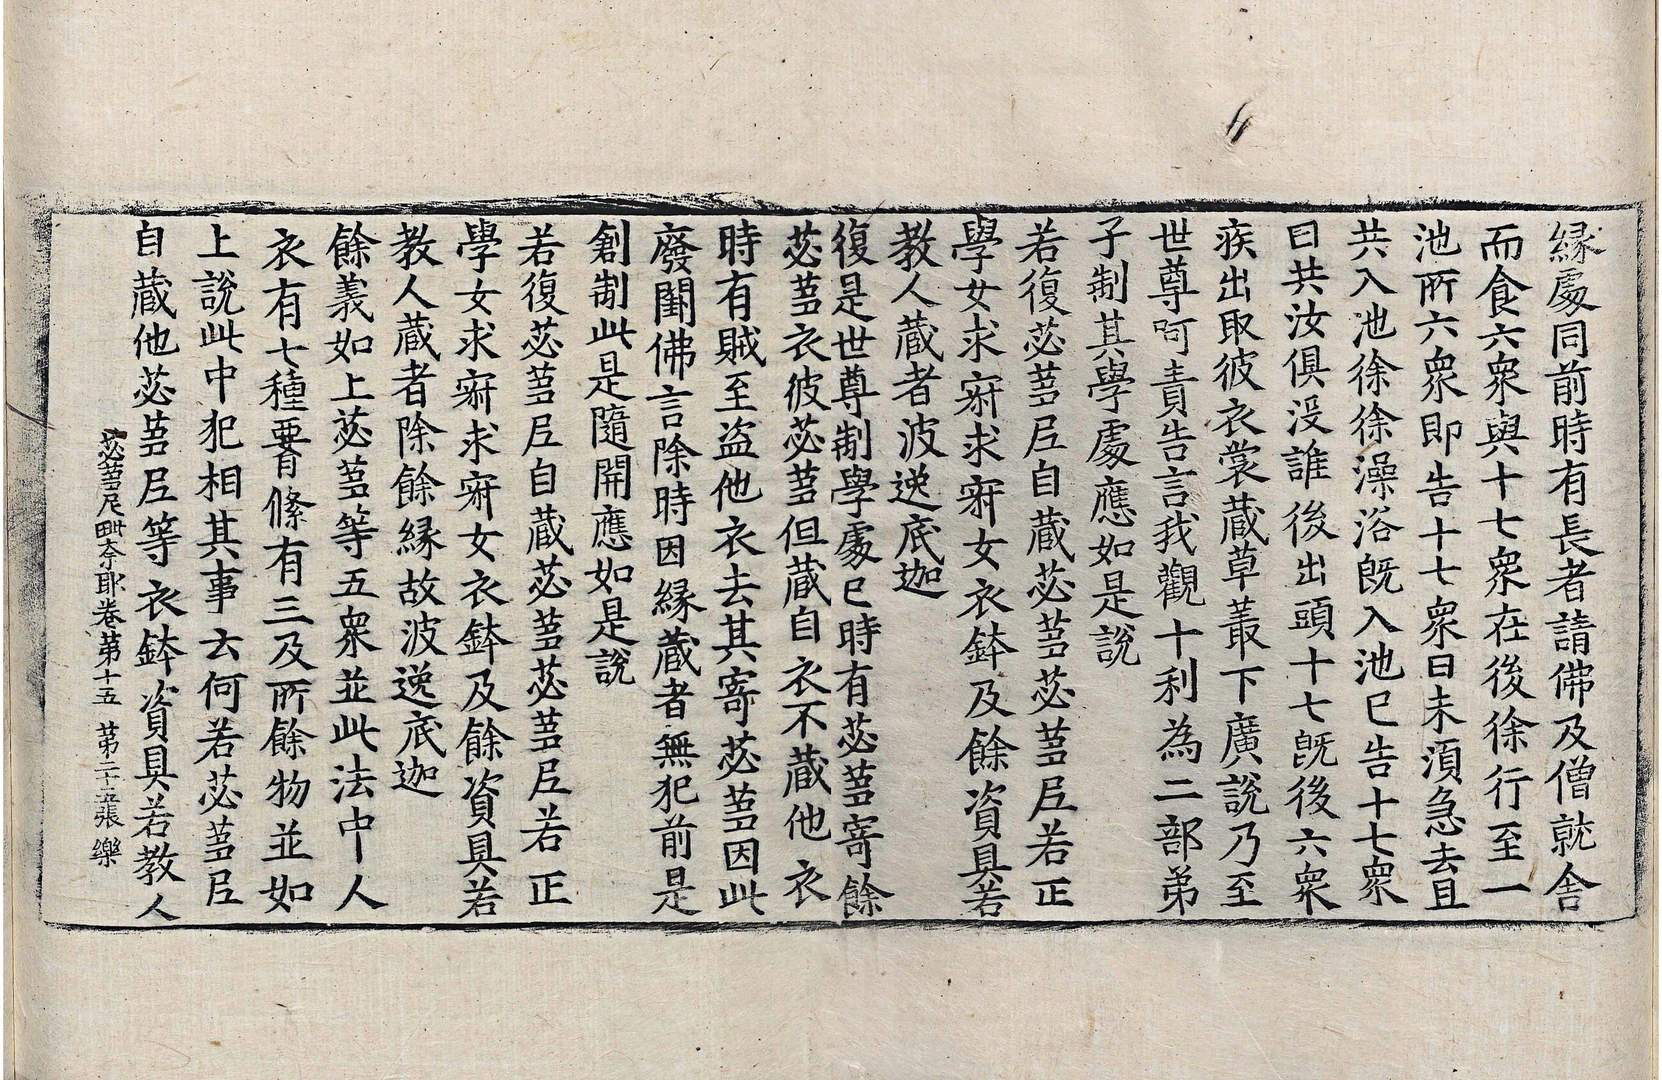 縁處同前時有長者請佛及僧就舍
而食六衆與十七衆在後徐行至一
池所六衆即告十七衆曰未湏急去且
共入池徐徐澡浴旣入池已告十七衆
曰共汝俱没誰後出頭十七旣後六衆
疾出取彼衣裳蔵草叢下廣說乃至
世尊呵責告言我觀十利為二部弟
子制其學處應如是說
若復苾芻尼自蔵苾芻苾芻尼若正
學女求寂求寂女衣鉢及餘資具若
教人蔵者波逸底迦
復是世尊制學處已時有苾芻寄餘
苾芻衣彼苾芻但蔵自衣不蔵他衣
時有賊至盜他衣去其寄苾芻因此
廢闕佛言除時因縁蔵者無犯前是
創制此是隨開應如是說
若復苾芻尼自蔵苾芻苾芻尼若正
學女求寂求寂女衣鉢及餘資具若
教人蔵者除餘縁故波逸底迦
餘義如上苾芻等五衆並此法中人
衣有七種要有絛有三及所餘物並如
上說此中犯相其事云何若苾芻尼
自蔵他苾芻尼等衣鉢資具若教人
苾芻尼毗奈耶卷第十五 第二十五張 樂